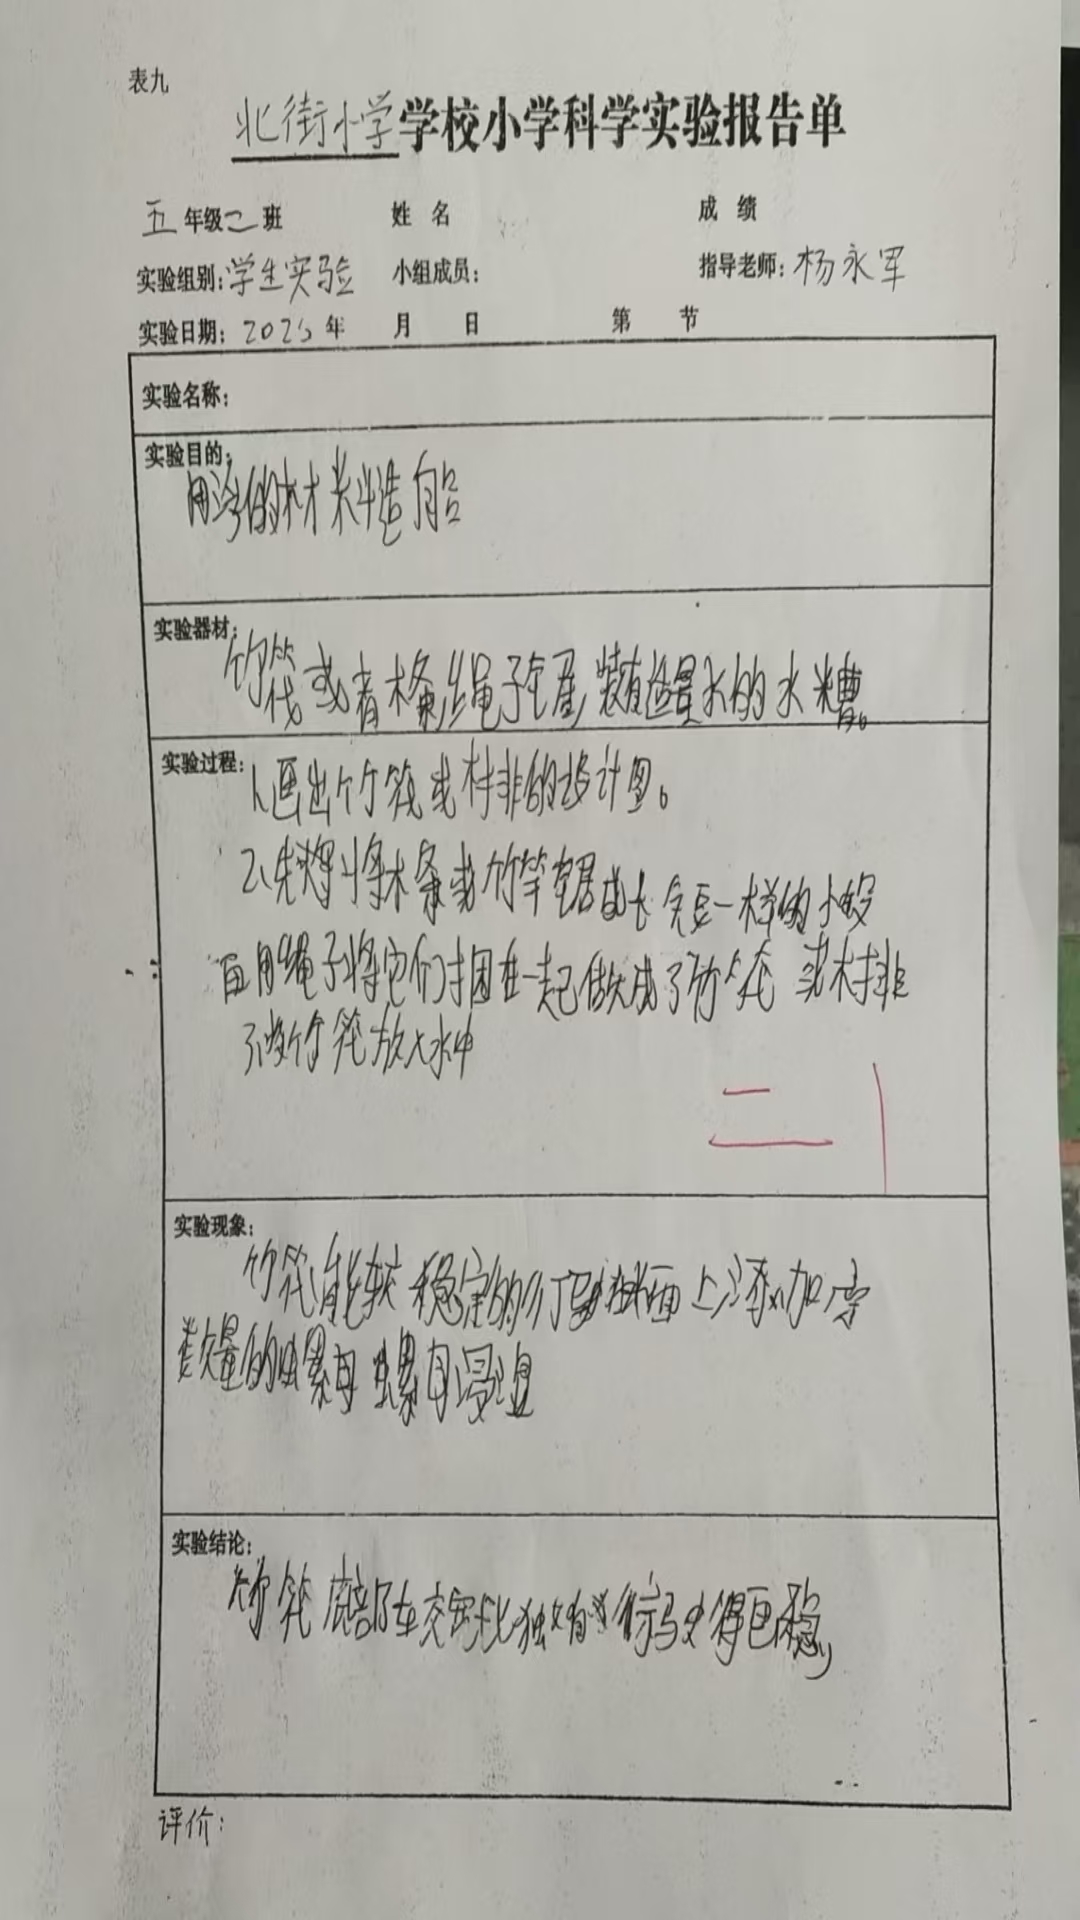 表九
北街小学学校小学科学实验报告单
五年级二班 姓名 成绩
实验组别:学生实验 小组成员: 指导老师:杨永军
实验日期:2025年 月 日 第 节
实验名称:
实验目的:
用浮的材料造船
实验器材:
竹筏或者木条,绳子 装有适量水的水槽。
实验过程:
1、画出竹筏或木排的设计图。
2、先将木条或竹竿锯成长短一样的小段
用绳子将它们捆在一起做成了竹筏或木排
3、将竹筏放入水中
二 1
实验现象:
竹筏能较稳定的行驶在水面上,添加
数量的螺母 螺母浸湿
实验结论:
竹筏底部 较宽比独木舟行驶得更稳
评价: